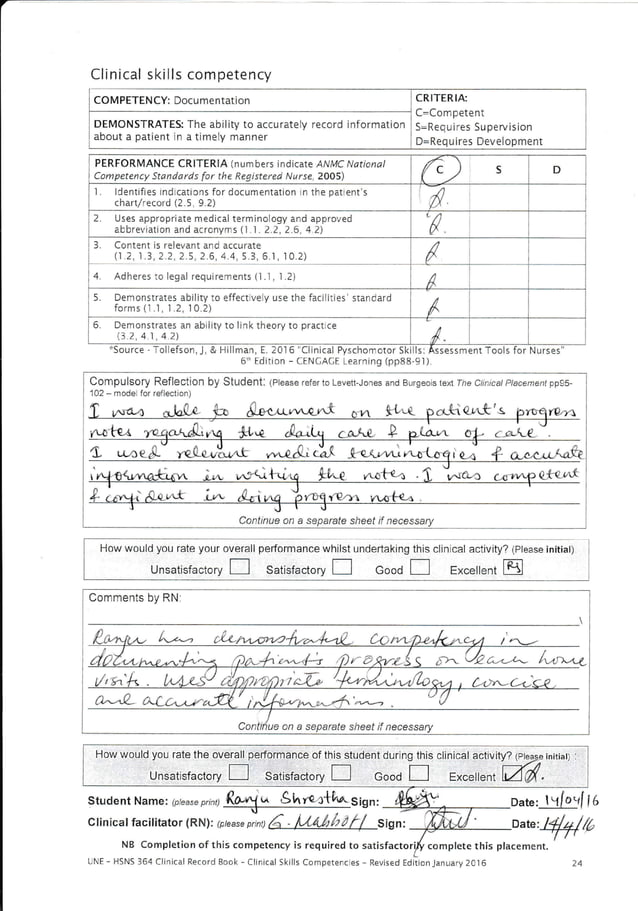 Clinical skills competency
COMPETENCY: Documentation
DEMONSTRATES: The ability to accurately record information
about a patient in a timely manner
CRITERIA:
C=Competent
S=Requires Supervision
D=Requires Development
PERFORMANCE CRITERIA (numbers indicate ANMC National
Competency Standards for the Registered Nurse, 2005)
C S D
1. Identifies indications for documentation in the patient's
chart/record (2.5, 9.2)
2. Uses appropriate medical terminology and approved
abbreviation and acronyms (1.1. 2.2, 2.6, 4.2)
3. Content is relevant and accurate
(1.2, 1.3, 2.2, 2.5, 2.6, 4.4, 5.3, 6.1, 10.2)
4. Adheres to legal requirements (1.1, 1.2)
5. Demonstrates ability to effectively use the facilities' standard
forms (1.1, 1.2, 10.2)
6. Demonstrates an ability to link theory to practice
(3.2, 4.1, 4.2)
*Source - Tollefson, J, & Hillman, E. 2016 "Clinical Pyschomotor Skills: Assessment Tools for Nurses"
6th Edition – CENGAGE Learning (pp88-91).
Compulsory Reflection by Student: (Please refer to Levett-Jones and Burgeois text The Clinical Placement pp95-
102 – model for reflection)
I was able to document on the patient's progress
notes regarding the daily care & plan of care.
I used relevant medical terminologies & accurate
information in writing the notes. I was competent
& confident in doing progress notes.
Continue on a separate sheet if necessary
How would you rate your overall performance whilst undertaking this clinical activity? (Please initial)
Unsatisfactory Satisfactory Good Excellent RS
Comments by RN:
Ranju has demonstrated competency in
documenting patient's progress on each home
visits. Uses appropriate terminology, concise
and accurate informations.
Continue on a separate sheet if necessary
How would you rate the overall performance of this student during this clinical activity? (Please initial) :
Unsatisfactory Satisfactory Good Excellent
Student Name: (please print) Ranju Shrestha Sign: Date: 14/04/16
Clinical facilitator (RN): (please print) G. Mabbott Sign: Date: 14/4/16
NB Completion of this competency is required to satisfactorily complete this placement.
UNE – HSNS 364 Clinical Record Book – Clinical Skills Competencies – Revised Edition January 2016 24